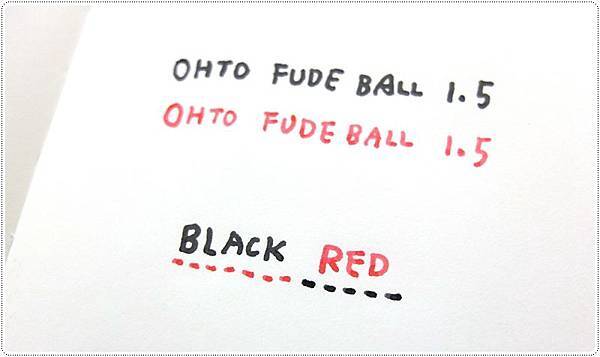 OHTO FUDE BALL 1.5
OHTO FUDE BALL 1.5
BLACK RED